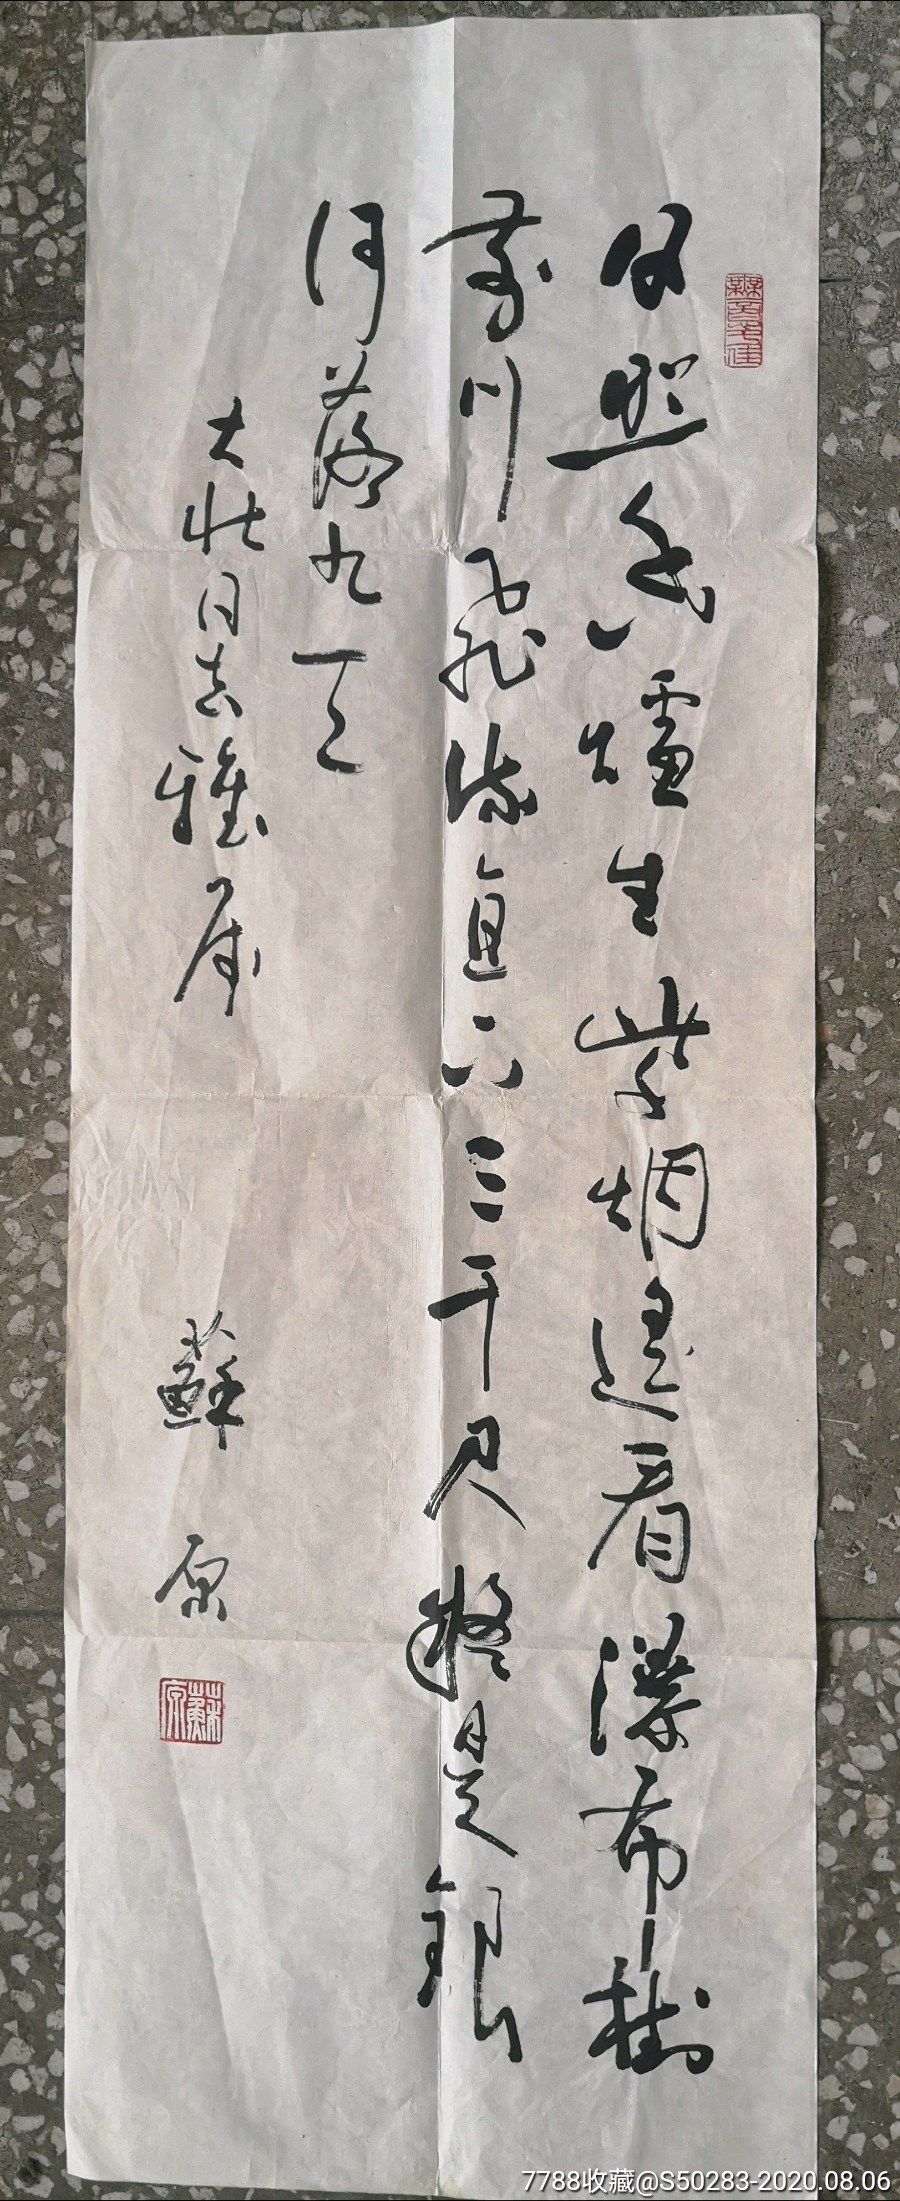 日照香爐生紫烟遥看瀑布掛
前川飛流直下三千尺疑是銀
河落九天
大壮同志雅属
蘇原
蘇原
7788收藏@S50283-2020.08.06